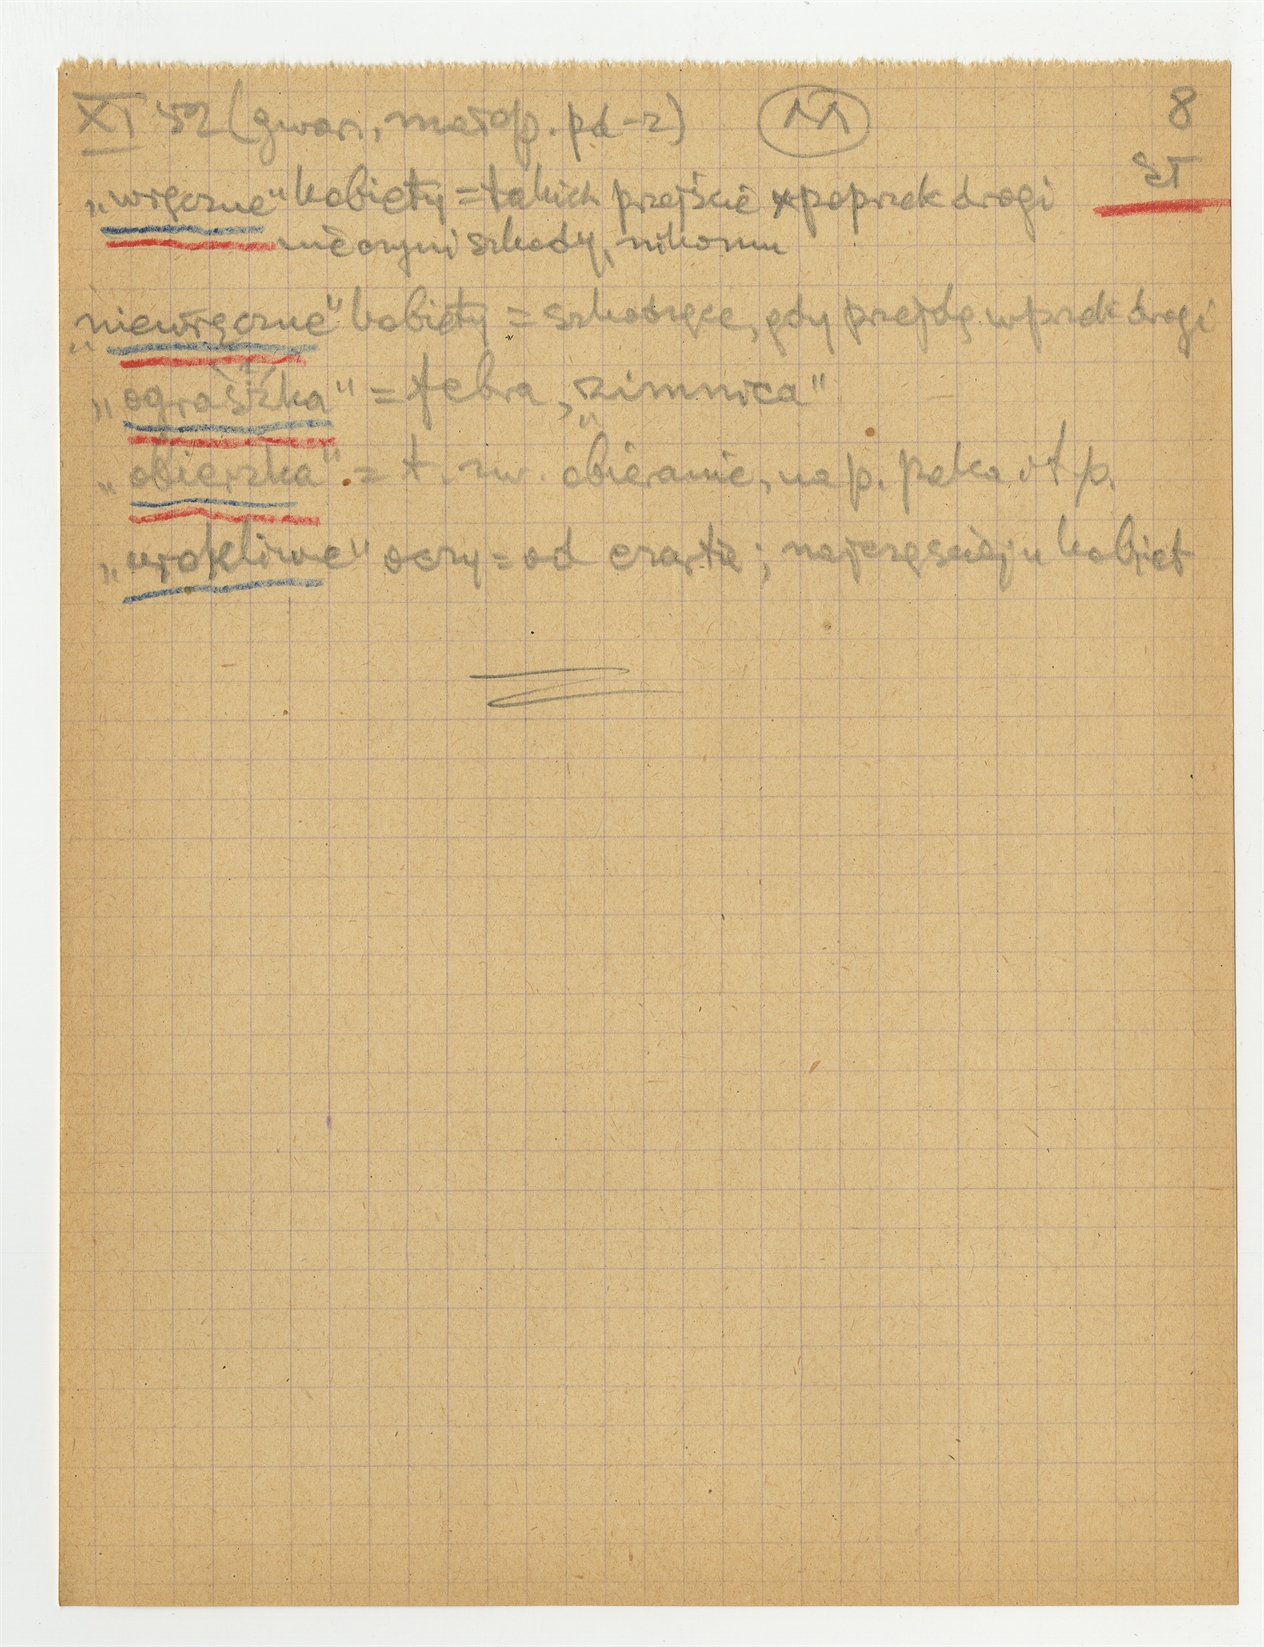 XI 52 (gwar., małop. pd-z) 11 8
„wręczne" kobiety = takich przejście poprzek drogi ST
nie czyni szkody, nikomu
„niewręczne" kobiety = szkodzące, gdy przejdą wprzek drogi
„ograszka" = febra, „zimnica"
„obierzka" = t. zw. obieranie, nap. palca itp.
„urokliwe" oczy = od czarta; najczęściej u kobiet